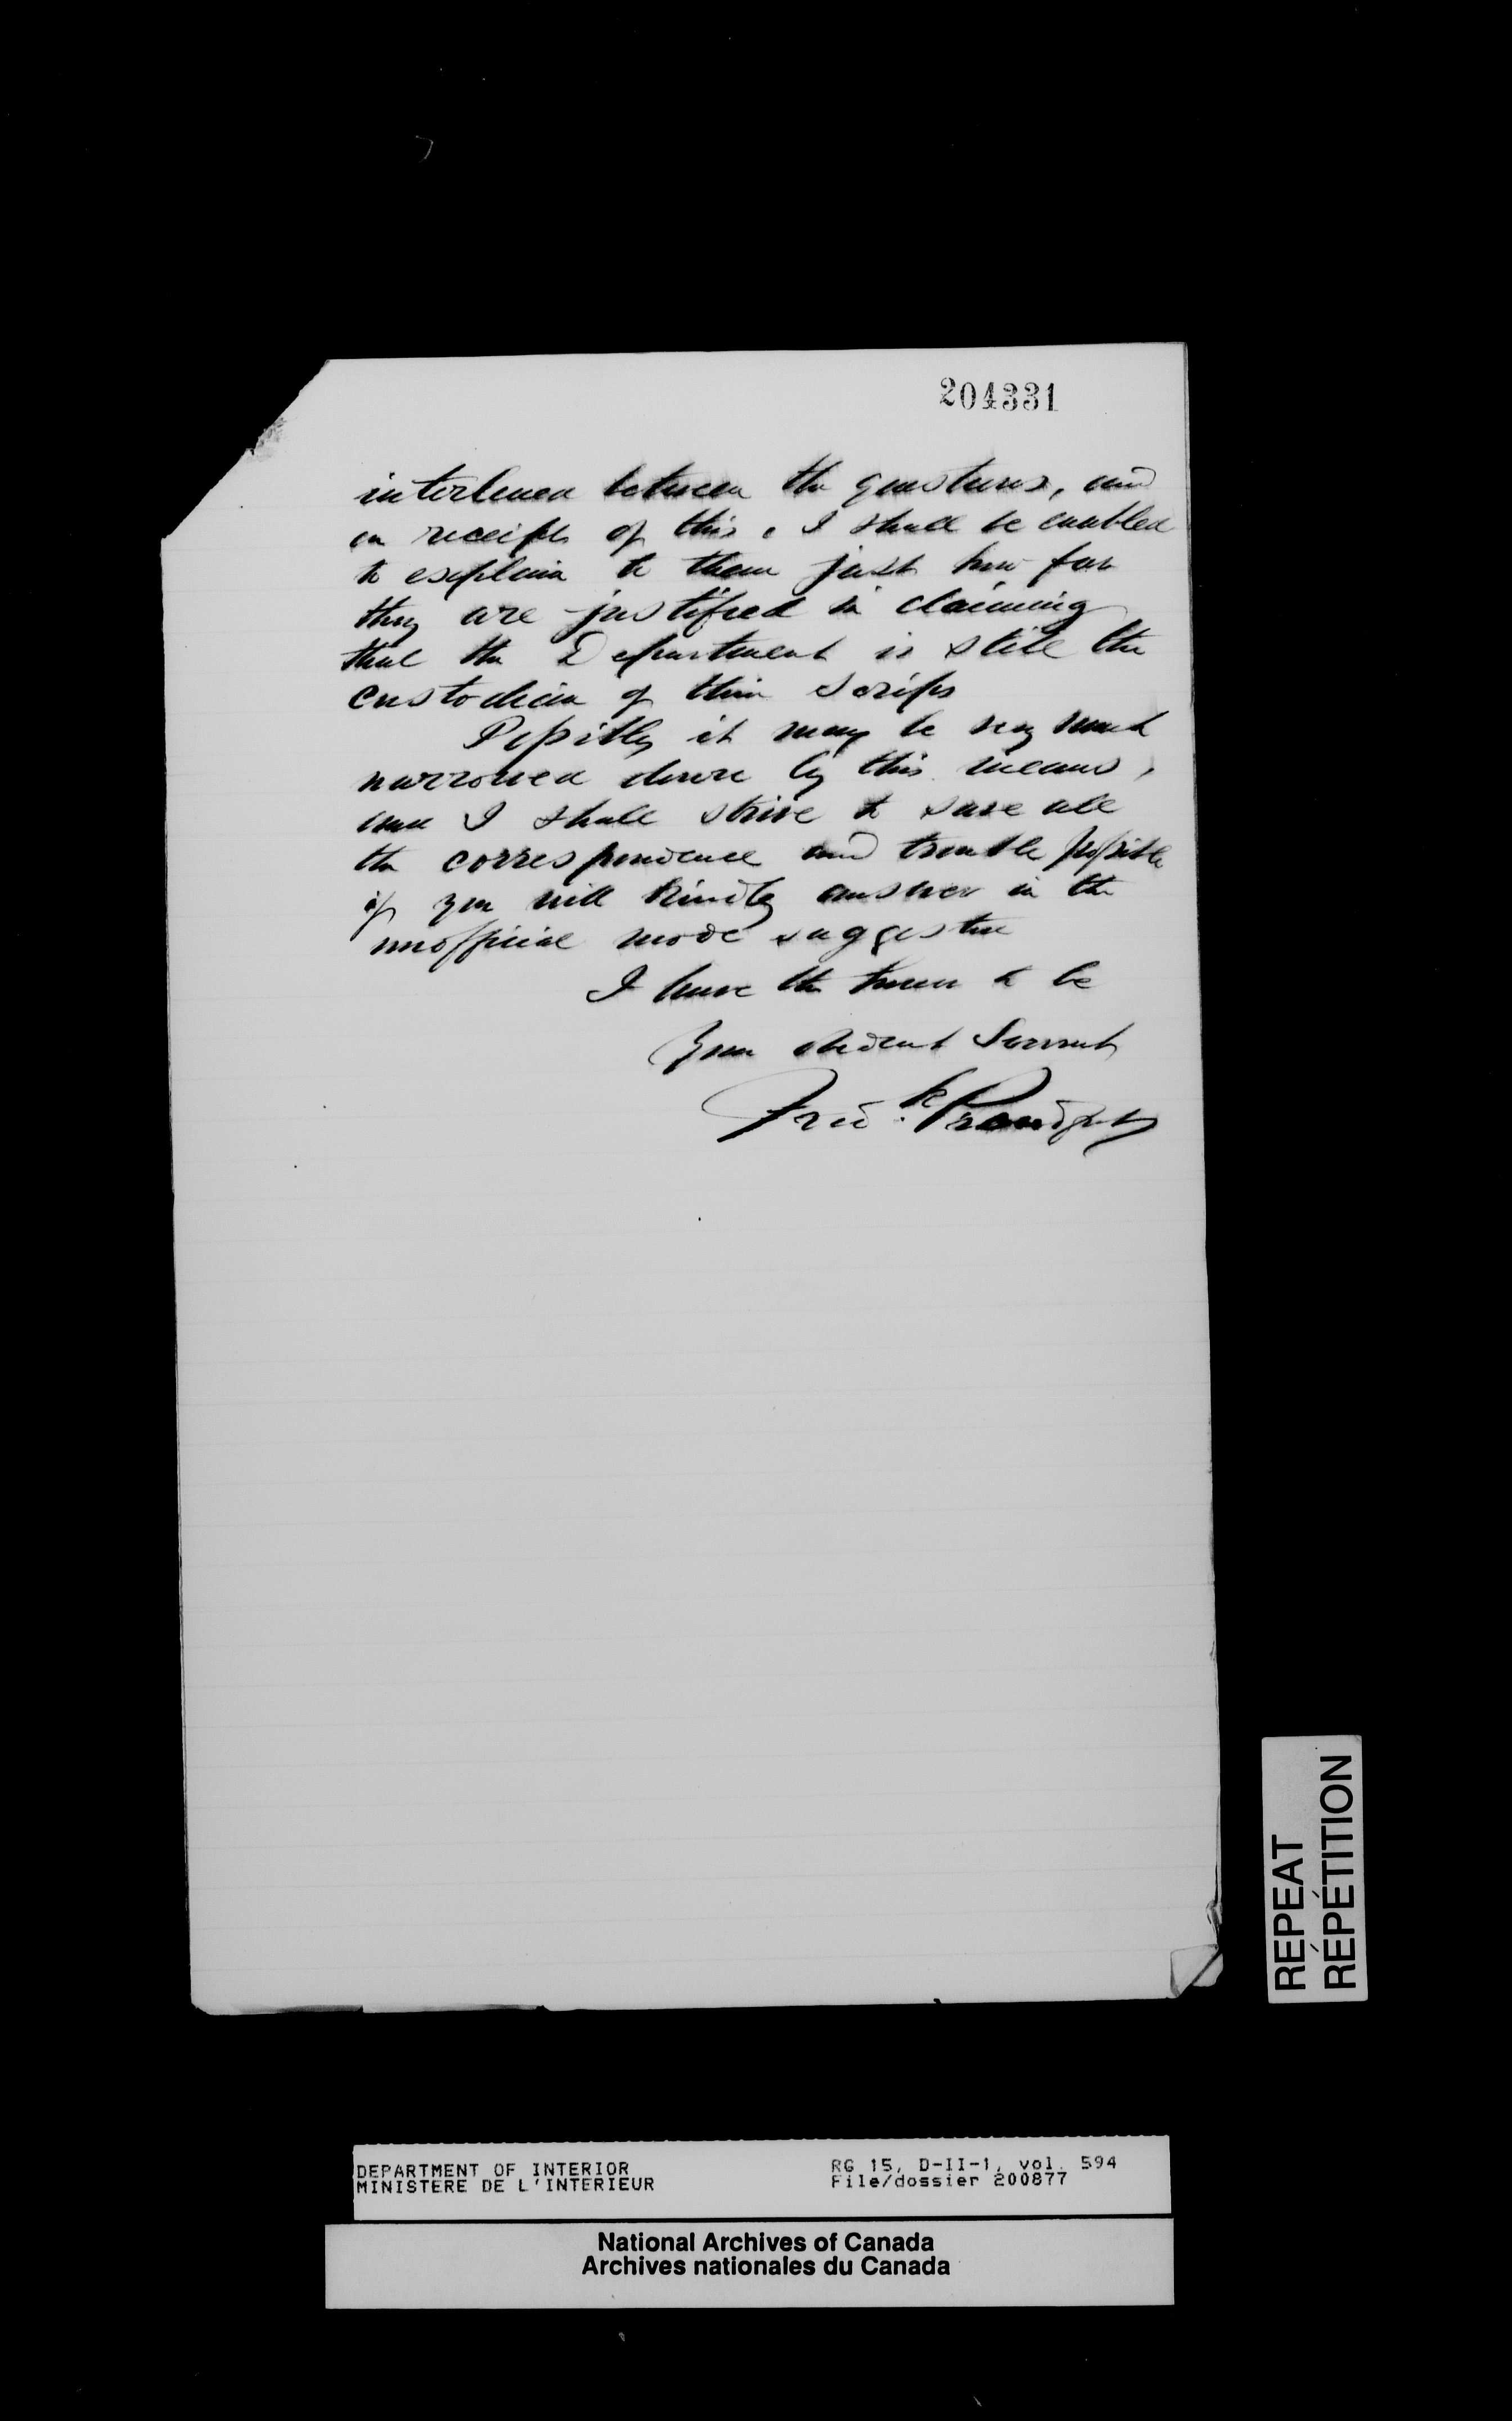 204331
interlined between the questions, and
on receipt of this, I shall be enabled
to explain to them just how far
they are justified in claiming
that the Department is still the
custodian of their scrips
Possibly it may be very much
narrowed down by this means,
and I shall strive to save all
the correspondence and trouble possible
if you will kindly answer in the
unofficial mode suggested
I have the honor to be
Your obedient Servant
Fred.k
REPEAT
RÉPÉTITION
DEPARTMENT OF INTERIOR
MINISTERE DE L'INTERIEUR
RG 15, D-II-1, vol. 594
File/dossier 200877
National Archives of Canada
Archives nationales du Canada